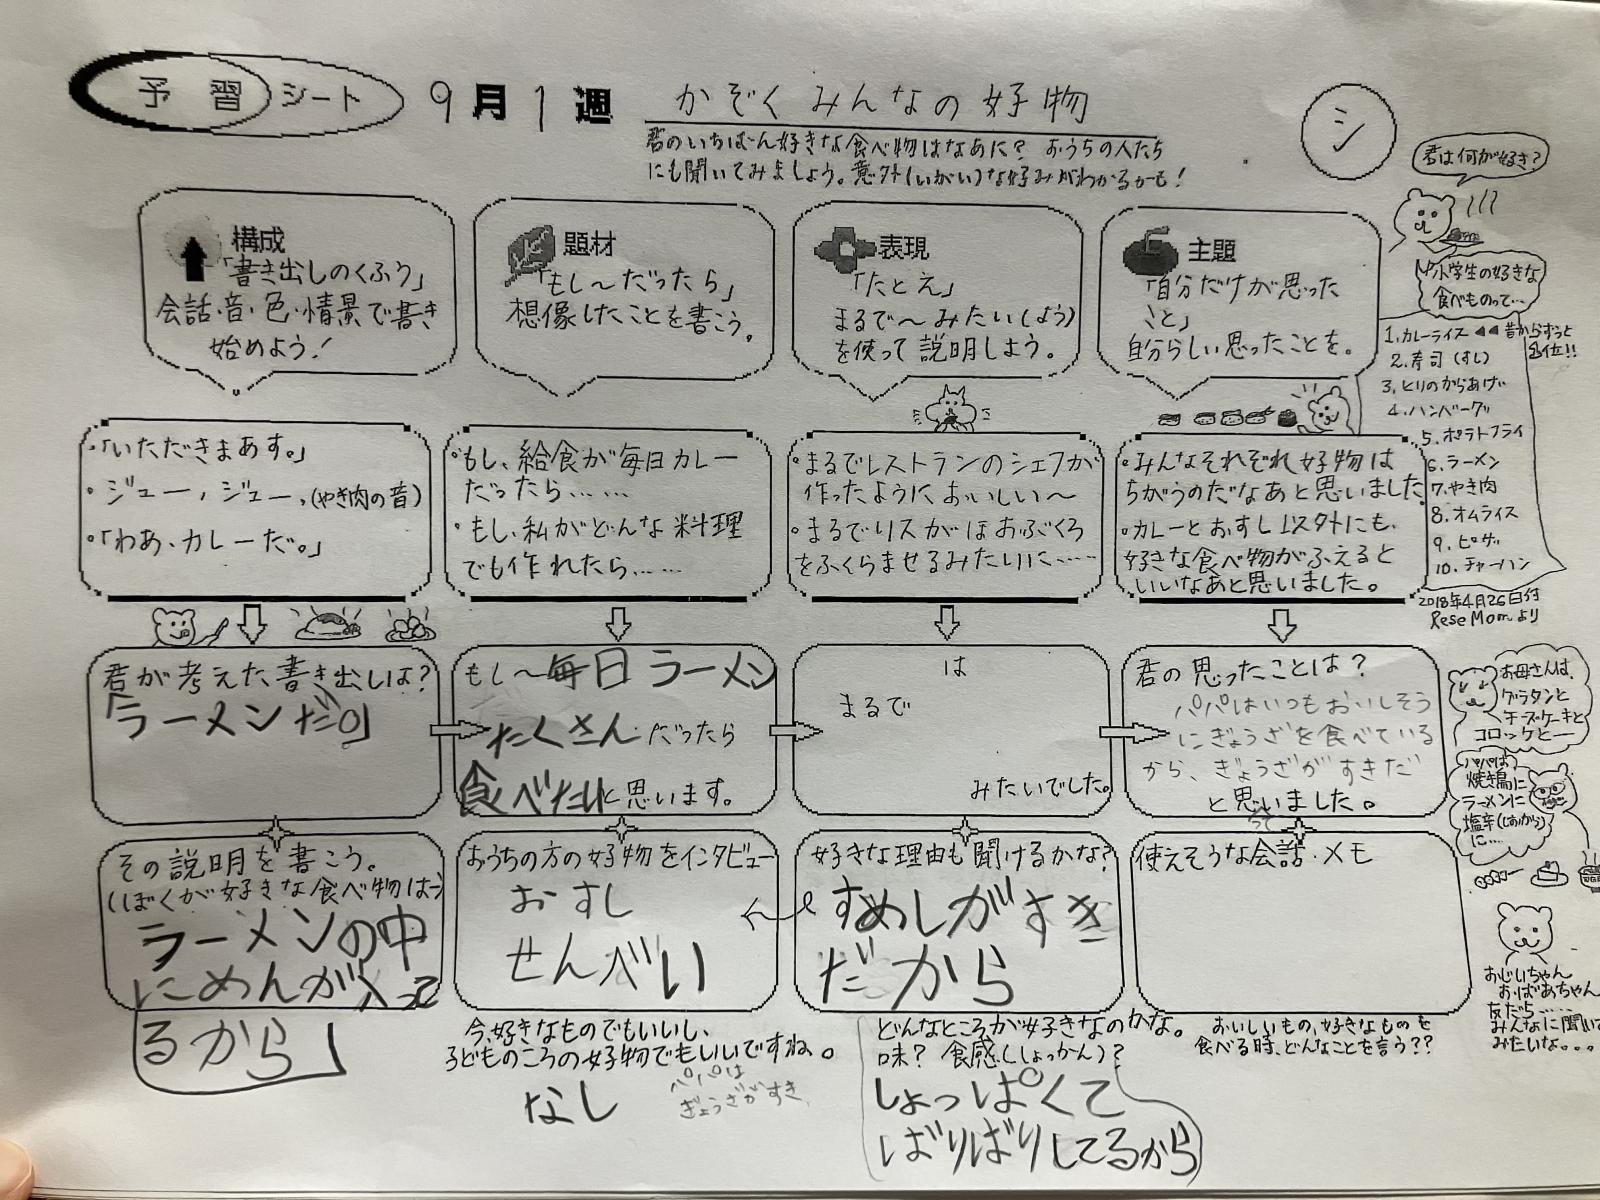 予習シート 9月1週 かぞくみんなの好物
シ
君のいちばん好きな食べ物はなあに? おうちの人たち
にも聞いてみましょう。意外(いがい)な好みがわかるかも!
構成
「書き出しのくふう」
会話・音・色・情景で書き
始めよう!
題材
「もし〜だったら」
想像したことを書こう。
表現
「たとえ」
まるで〜みたい(よう)
を使って説明しよう。
主題
「自分だけが思った
こと」
自分らしい思ったことを。
君は何が好き?
小学生の好きな
食べものって…
1.カレーライス ◀◀ 昔からずっと
1位!!
2.寿司(すし)
3.とりのからあげ
4.ハンバーグ
5.ポテトフライ
6.ラーメン
7.やき肉
8.オムライス
9.ピザ
10.チャーハン
2018年4月26日付
ReseMomより
・「いただきまあす。」
・ジュー、ジュー、(やき肉の音)
・「わあ、カレーだ。」
・もし、給食が毎日カレー
だったら……
・もし、私がどんな料理
でも作れたら……
・まるでレストランのシェフが
作ったようにおいしい〜
・まるでリスがほおぶくろ
をふくらませるみたいに……
・みんなそれぞれ好物は
ちがうのだなあと思いました。
・カレーとおすし以外にも、
好きな食べ物がふえると
いいなあと思いました。
君が考えた書き出しは?
「ラーメンだ。」
もし〜毎日ラーメン
たくさんだったら
食べたいと思います。
は
まるで
みたいでした。
君の思ったことは?
パパはいつもおいしそう
にぎょうざを食べている
から、ぎょうざがすきだ
と思いました。
って
お母さんは、
グラタンと
チーズケーキと
コロッケと―
パパは
焼き鳥に
ラーメンに
塩辛(しおから)
に…
その説明を書こう。
(ぼくが好きな食べ物は〜)
ラーメンの中
にめんが入って
るから」
おうちの方の好物をインタビュー
おすし
せんべい
今、好きなものでもいいし、
子どものころの好物でもいいですね。
なし
パパは
ぎょうざがすき
好きな理由も聞けるかな?
すめしがすき
だから
どんなところが好きなのかな。
味? 食感(しょっかん)?
しょっぱくて
ばりばりしてるから
使えそうな会話・メモ
おいしいもの、好きなものを
食べる時、どんなことを言う??
おじいちゃん
おばあちゃん
友だち……
みんなに聞いて
みたいな。。。